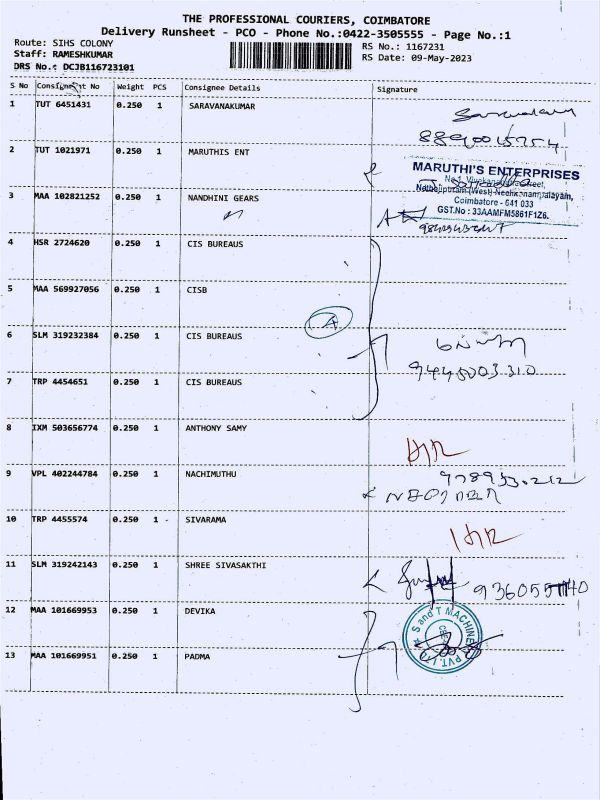 THE PROFESSIONAL COURIERS, COIMBATORE
Delivery Runsheet - PCO - Phone No.:0422-3505555 - Page No.:1
Route: SIHS COLONY
RS No.: 1167231
Staff: RAMESHKUMAR
RS Date: 09-May-2023
DRS No.: DCJB116723101
S No Consignment No Weight PCS Consignee Details Signature
1 TUT 6451431 0.250 1 SARAVANAKUMAR
2 TUT 1021971 0.250 1 MARUTHIS ENT
MARUTHI'S ENTERPRISES
Coimbatore - 641 033
GST.No : 33AAMFM5861F1Z6.
3 MAA 102821252 0.250 1 NANDHINI GEARS
4 HSR 2724620 0.250 1 CIS BUREAUS
5 MAA 569927056 0.250 1 CISB
A
6 SLM 319232384 0.250 1 CIS BUREAUS
9445003310
7 TRP 4454651 0.250 1 CIS BUREAUS
8 IXM 503656774 0.250 1 ANTHONY SAMY
9 VPL 402244784 0.250 1 NACHIMUTHU
10 TRP 4455574 0.250 1 - SIVARAMA
11 SLM 319242143 0.250 1 SHREE SIVASAKTHI
12 MAA 101669953 0.250 1 DEVIKA
S and T MACHINERY PVT. LTD
13 MAA 101669951 0.250 1 PADMA